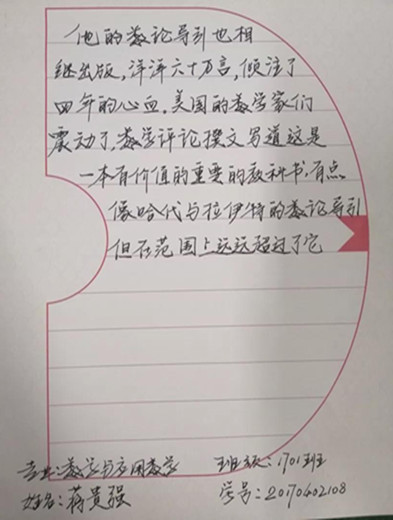 他的数论导引也相
继出版,洋洋六十万言,倾注了
四年的心血.美国的数学家们
震动了,数学评论撰文写道这是
一本有价值的重要的教科书.有点
像哈代与拉伊特的数论导引
但在范围上远远超过了它
专业:数学与应用数学 班级:1701班
姓名:蒋贵强 学号:20170402108